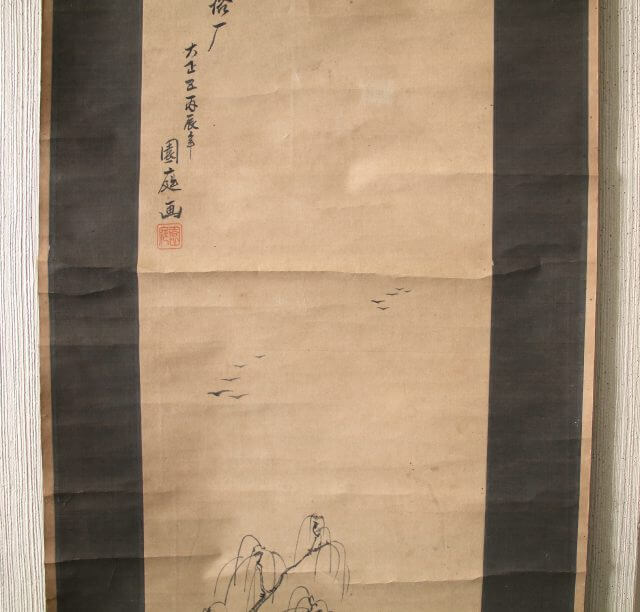 厂
大正五丙辰年
園庭画